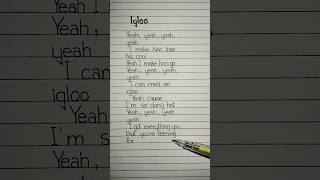 Igloo
Yeah, yeah, yeah,
yeah
I make him lose
his cool
Yeah I make him go
Yeah, yeah, yeah,
yeah
I can melt an
igloo
Yeah cause
I'm so dang hot
Yeah, yeah, yeah
yeah
I got everything you
that you're feening
for
Yeah,
yeah
I can
igloo
Yeah
I'm s
Yeah,